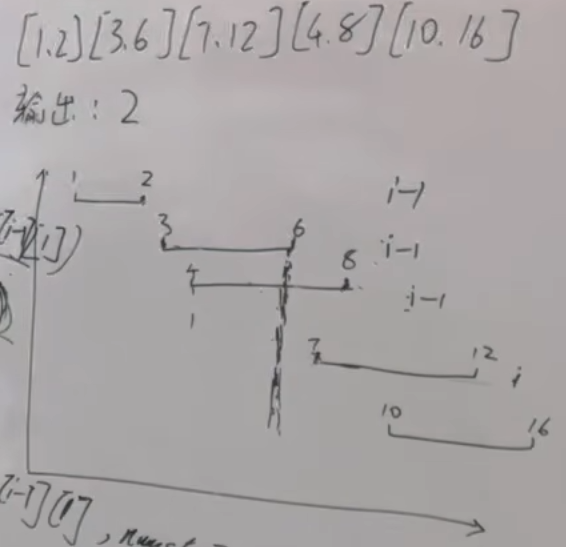 [1.2][3.6][7.12][4.8][10.16]
输出：2
1 2 i-1
3 6 i-1
[i-1][1])
4 8 i-1
1
7 12 i
10 16
[i-1][1],